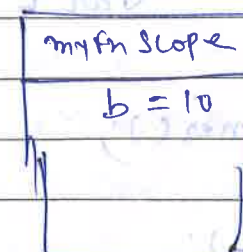 myFn Scope
b = 10